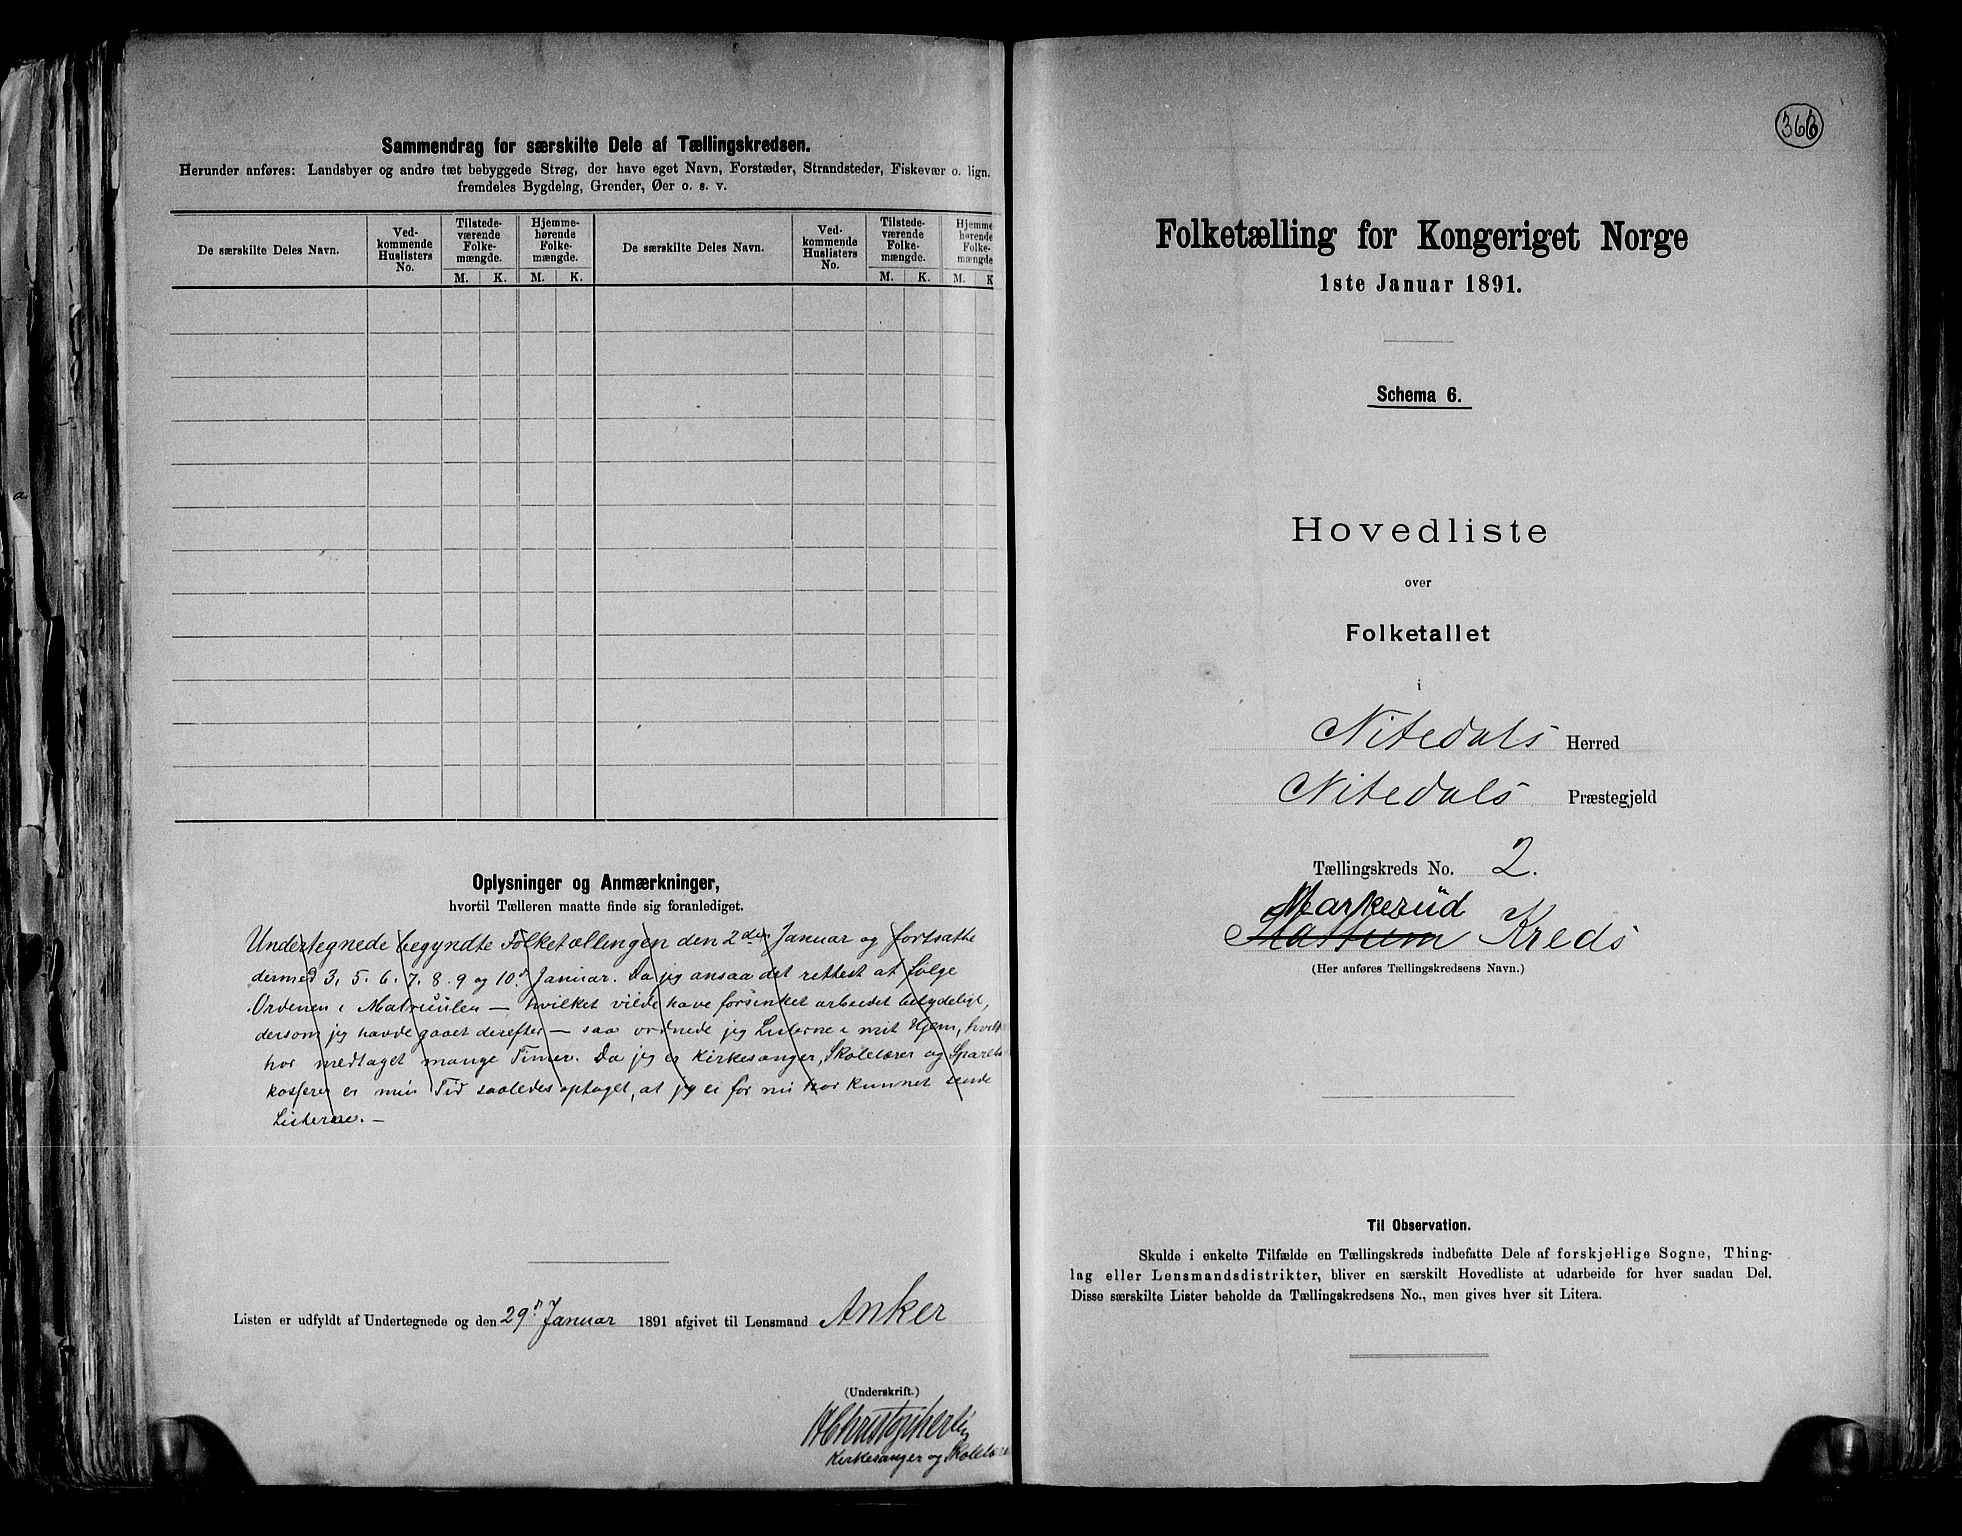 Sammendrag for særskilte Dele af Tællingskredsen.
Herunder anføres: Landsbyer og andre tæt bebyggede Strøg, der have eget Navn, Forstæder, Strandsteder, Fiskevær o. lign.
fremdeles Bygdelag, Grender, Øer o. s. v.
De særskilte Deles Navn.
Ved-
kommende
Huslisters
No.
Tilstede-
værende
Folke-
mængde.
M. K.
Hjemme-
hørende
Folke-
mængde.
M. K.
De særskilte Deles Navn.
Ved-
kommende
Huslisters
No.
Tilstede-
værende
Folke-
mængde.
M. K.
Hjemme
hørende
Folke-
mængde
M. K
Oplysninger og Anmærkninger,
hvortil Tælleren maatte finde sig foranlediget.
Undertegnede begyndte Folketællingen den 2den Januar og fortsatte
dermed 3, 5. 6. 7. 8. 9 og 10d Januar. Da jeg ansaa det rettest at følge
Ordenen i Matrikulen — hvilket vilde have forsinket arbeidet betydeligt,
dersom jeg havde gaaet derefter — saa ordnede jeg Listerne i mit Hjem, hvilk
har medtaget mange Timer. Da jeg er Kirkesanger, Skolelærer og
kasserer er min Tid saaledes optaget, at jeg ei før nu har kunnet sende
Listerne. —
Listen er udfyldt af Undertegnede og den 29d Januar 1891 afgivet til Lensmand Anker
(Underskrift.)
Kirkesanger og Skolelære
366
Folketælling for Kongeriget Norge
1ste Januar 1891.
Schema 6.
Hovedliste
over
Folketallet
i
Nitedals Herred
Nitedals Præstegjeld
Tællingskreds No. 2.
Markerud
Hattum Kreds
(Her anføres Tællingskredsens Navn.)
Til Observation.
Skulde i enkelte Tilfælde en Tællingskreds indbefatte Dele af forskjellige Sogne, Thing-
lag eller Lensmandsdistrikter, bliver en særskilt Hovedliste at udarbeide for hver saadan Del.
Disse særskilte Lister beholde da Tællingskredsens No., men gives hver sit Litera.